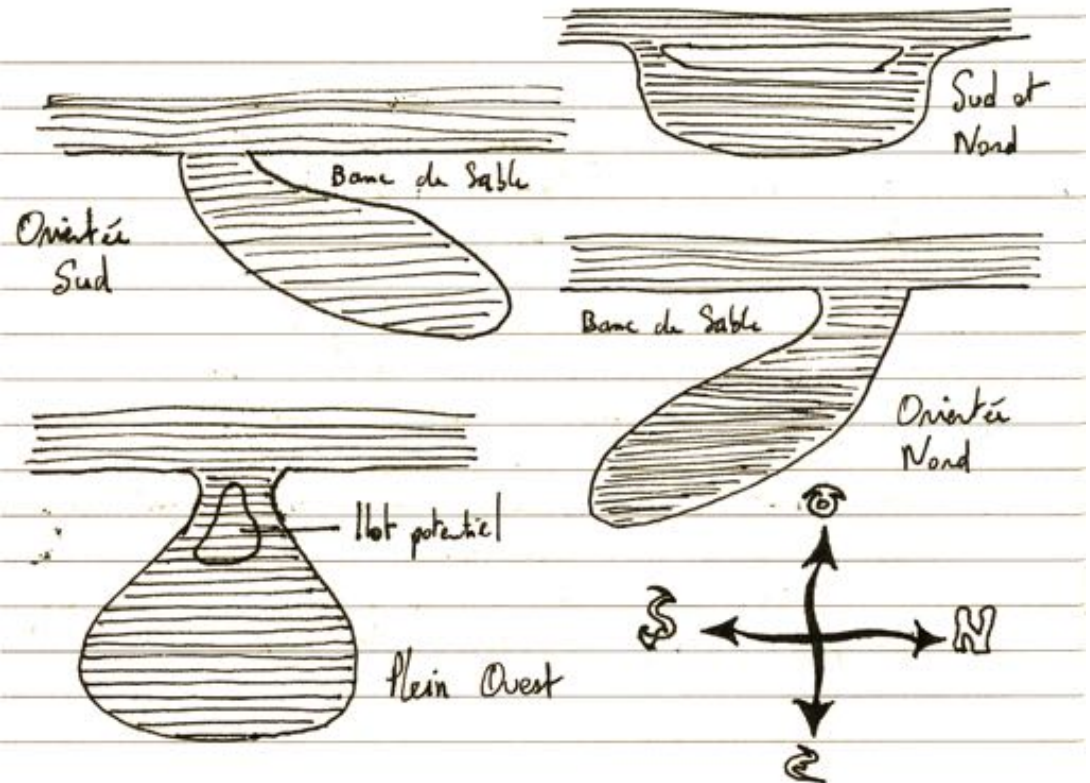 Sud et
Nord
Banc de Sable
Orientée
Sud
Banc de Sable
Orientée
Nord
Ilot potentiel
Plein Ouest
O
S
N
E